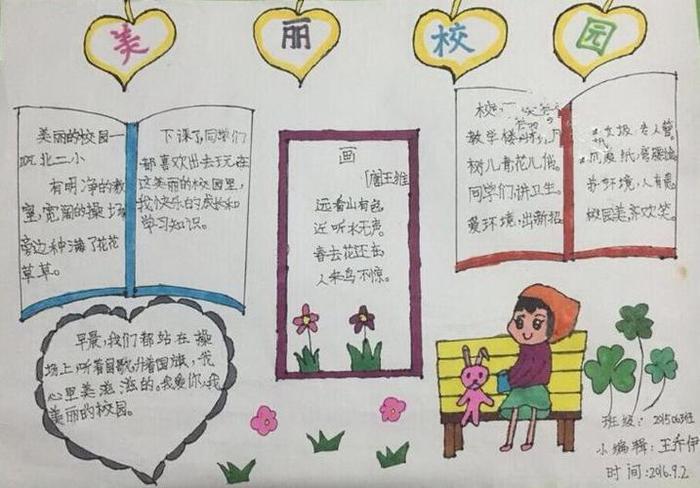 美丽校园
美丽的校园一
北二小
有明净的教
室,宽阔的操场
旁边种满了花花
草草。
下课了,同学们
都喜欢出去玩,在
这美丽的校园里,
我们快乐的成长和
学习知识。
画
[唐]王维
远看山有色,
近听水无声。
春去花还在,
人来鸟不惊。
校
教学楼
树儿青花儿俏。
同学们,讲卫生。
爱环境,出新招
专人管。
纸,弯腰捡。
环境,人有责。
校园美齐欢笑。
早晨,我们都站在操
场上听着国歌,升着国旗,我
心里美滋滋的。我爱你,我
美丽的校园。
班级:201506班
小编辑:王乔伊
时间:2016.9.2